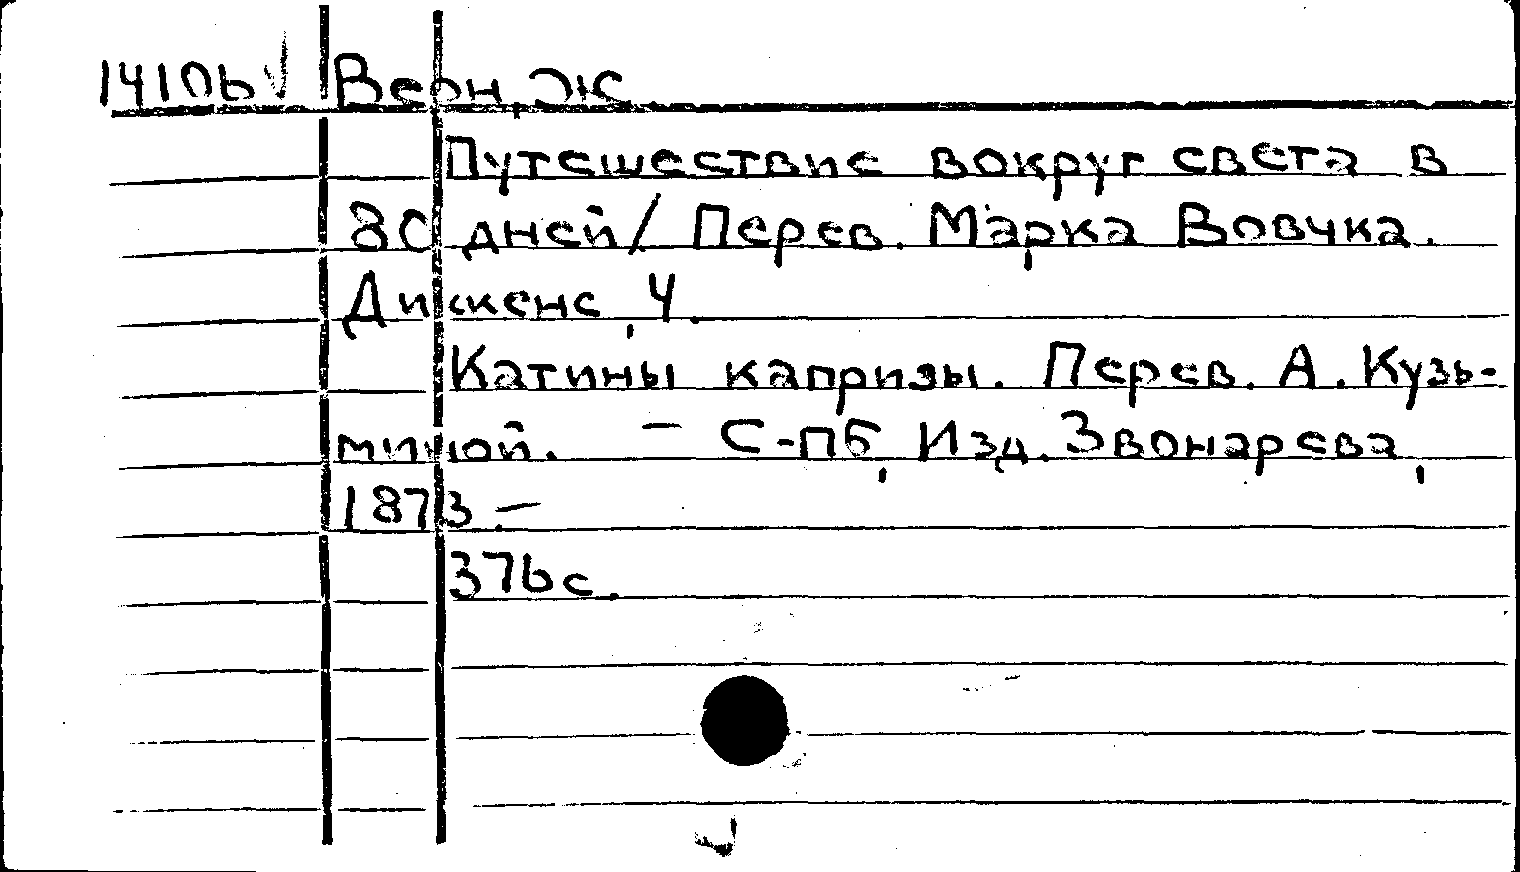 14106 Верн, Ж.
Путешествие вокруг света в
80 дней/ Перев. Марка Вовчка.
Диккенс, Ч.
Катины капризы. Перев. А. Кузь-
миной. — С-пб, Изд. Звонарева,
1873.—
376 с.